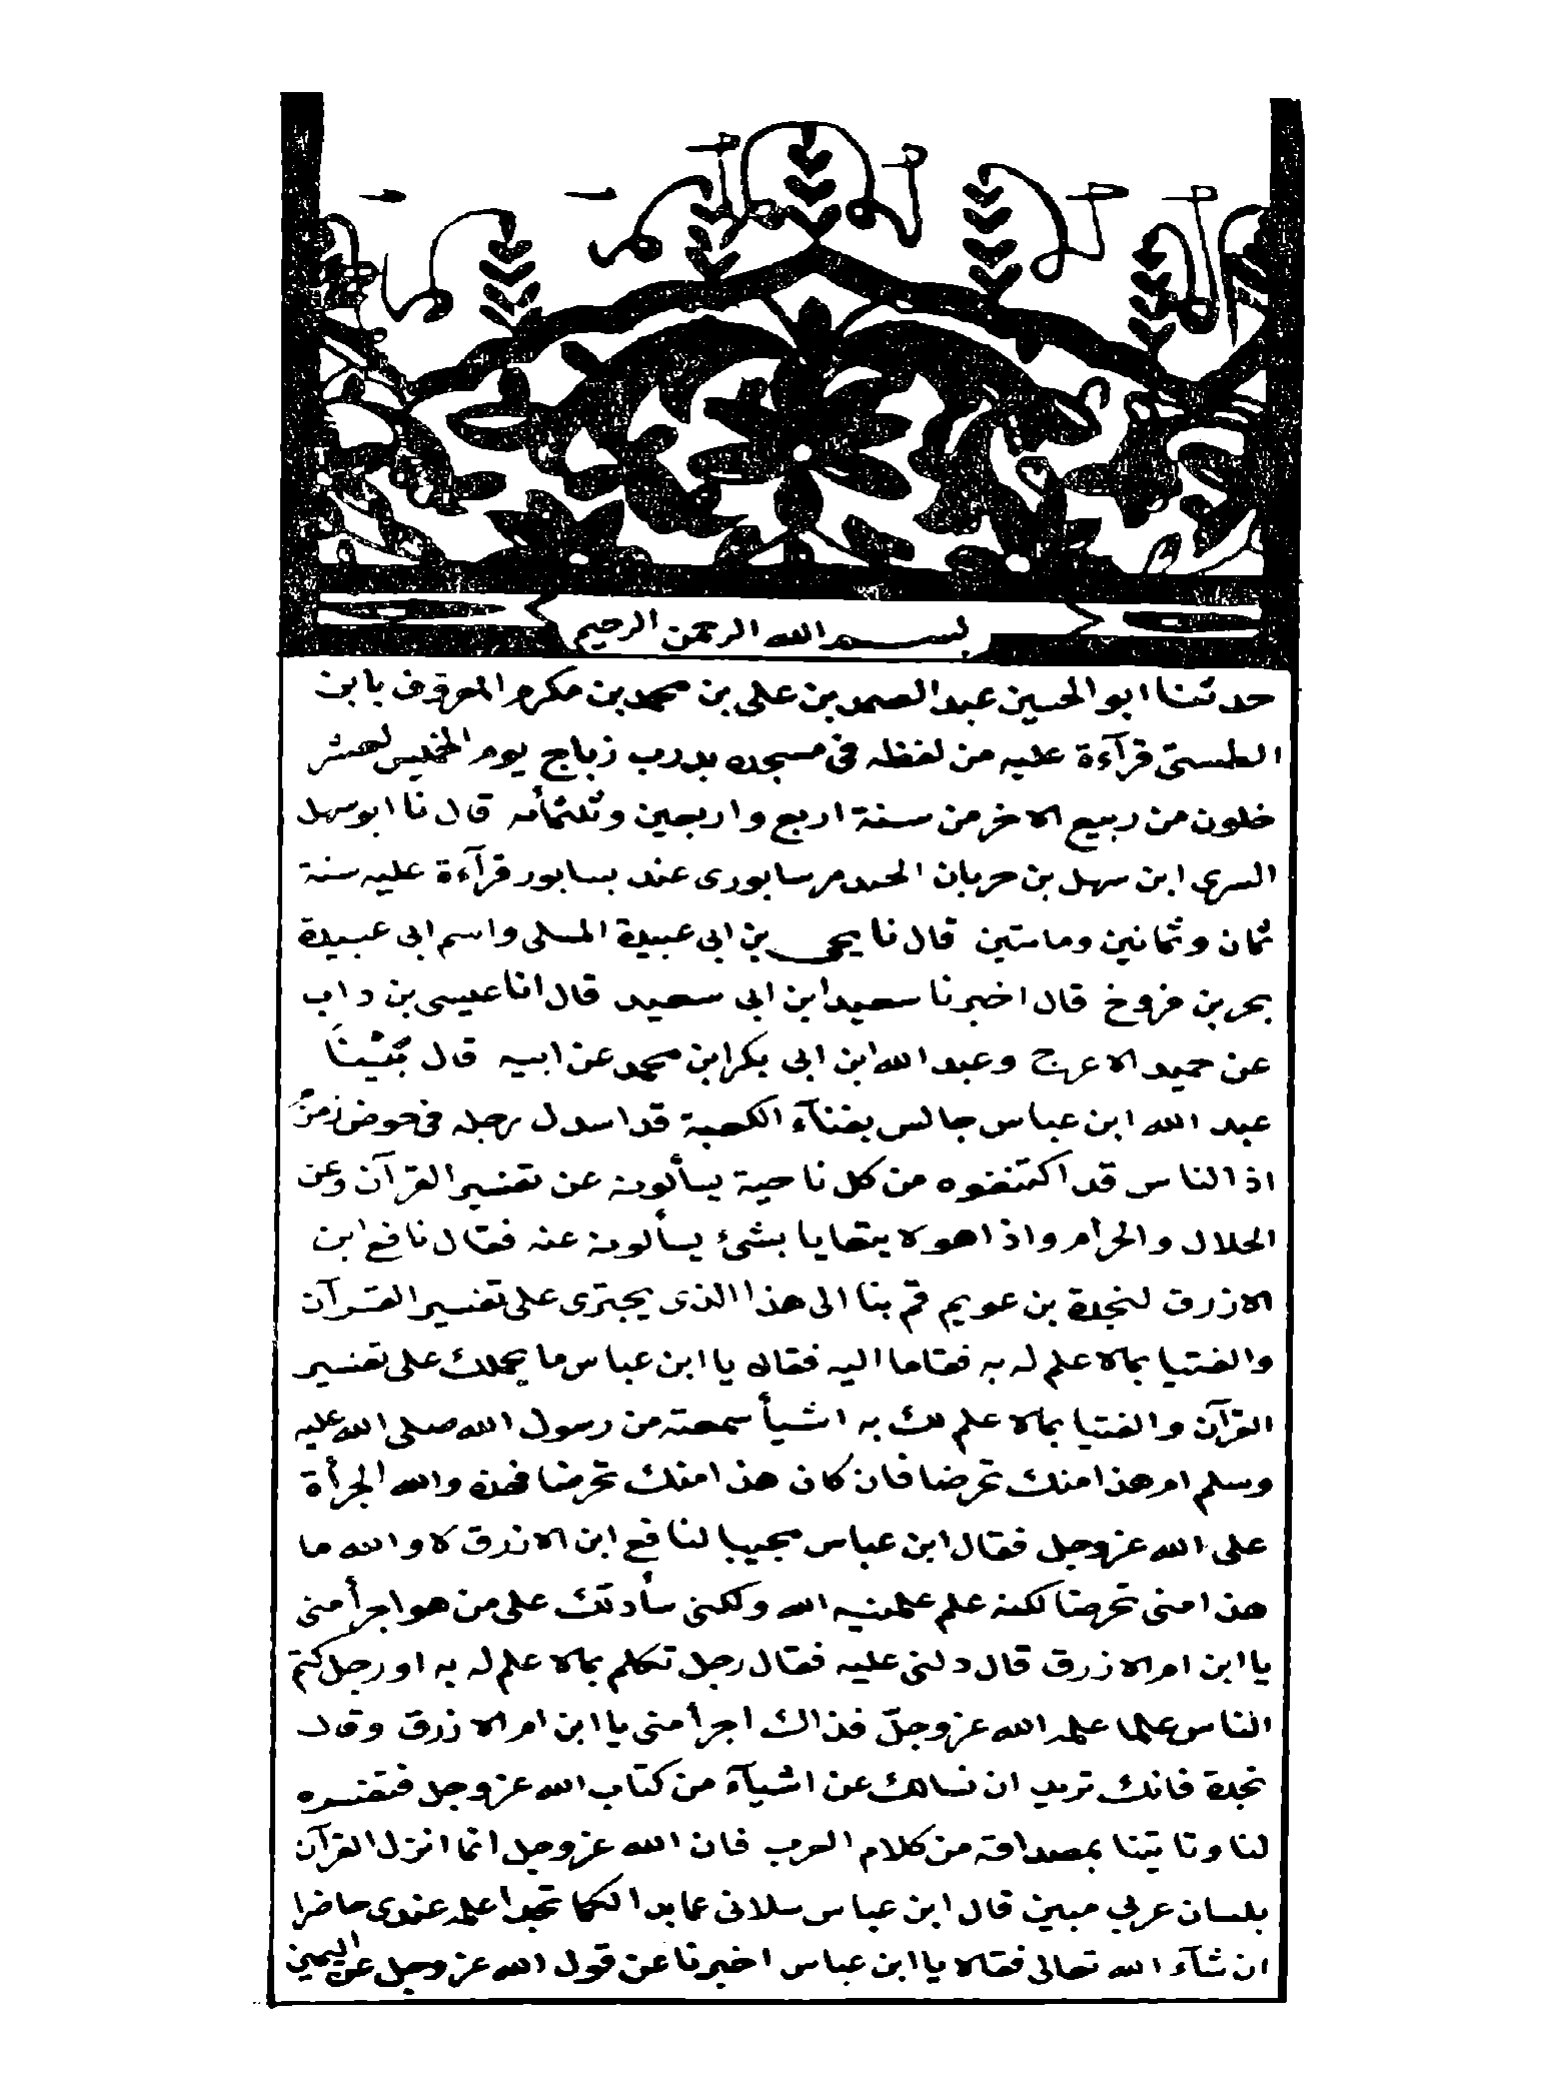 بسم الله الرحمن الرحيم
حدثنا ابو الحسين عبد الصمد بن على بن محمد بن مكرم المعروف بابن
الطستى قرآءة عليه من لفظه فى مسجده بدرب زباج يوم الخميس لعشر
خلون من ربيع الاخر من سنة اربع واربعين وثلثمأىه قال نا ابو سهل
السري ابن سهل بن حربان الجندىسابورى عند بسابور قرآءة عليه سنة
ثمان وثمانين ومامتين قال نا يحيى بن ابى عبيدة المسلى واسم ابى عبيدة
بحر بن فروخ قال اخبرنا سعيد ابن ابى سعيد قال انا عيسى بن داب
عن حميد الاعرج وعبد الله ابن ابى بكر ابن محمد عن ابيه قال بَيْنَا
عبد الله ابن عباس جالس بفنآء الكعبة قد اسدل رجله فى حوض زمزم
اذ الناس قد اكتنفوه من كل ناحية يسألونه عن تفسير القرآن وعن
الحلال والحرام واذا هو لا يتعايا بشئ يسألونه عنه فقال نافع ابن
الازرق لنجدة بن عويم قم بنا الى هذا الذى يجترى على تفسير القرآن
والفتيا بمالا علم له به فقاما اليه فقالا يا ابن عباس ما يحملك على تفسير
القرآن والفتيا بمالا علم لك به اشيأ سمعته من رسول الله صلى الله عليه
وسلم ام هذا منك تخرصا فان كان هذا منك تخرصا فهذه والله الجرأة
على الله عز وجل فقال ابن عباس مجيبا لنافع ابن الازرق لا والله ما
هذا منى تخرصا لكنه علم علمنيه الله ولكنى سأدلك على من هو اجرأ منى
يا ابن ام الازرق قال دلنى عليه فقال رجل تكلم بمالا علم له به او رجل كتم
الناس علما علمه الله عز وجلّ فذاك اجرأ منى يا ابن ام الازرق وقال
نجدة فانك تريد ان نسالك عن اشيآء من كتاب الله عز وجل فتفسره
لنا وتاتينا بمصداقه من كلام العرب فان الله عز وجل انما انزل القرآن
بلسان عربي مبين قال ابن عباس سلانى عما بدا لكما تجدا علمه عندى حاضرا
ان شآء الله تعالى فقالا يا ابن عباس اخبرنا عن قول الله عز وجل عن اليمين